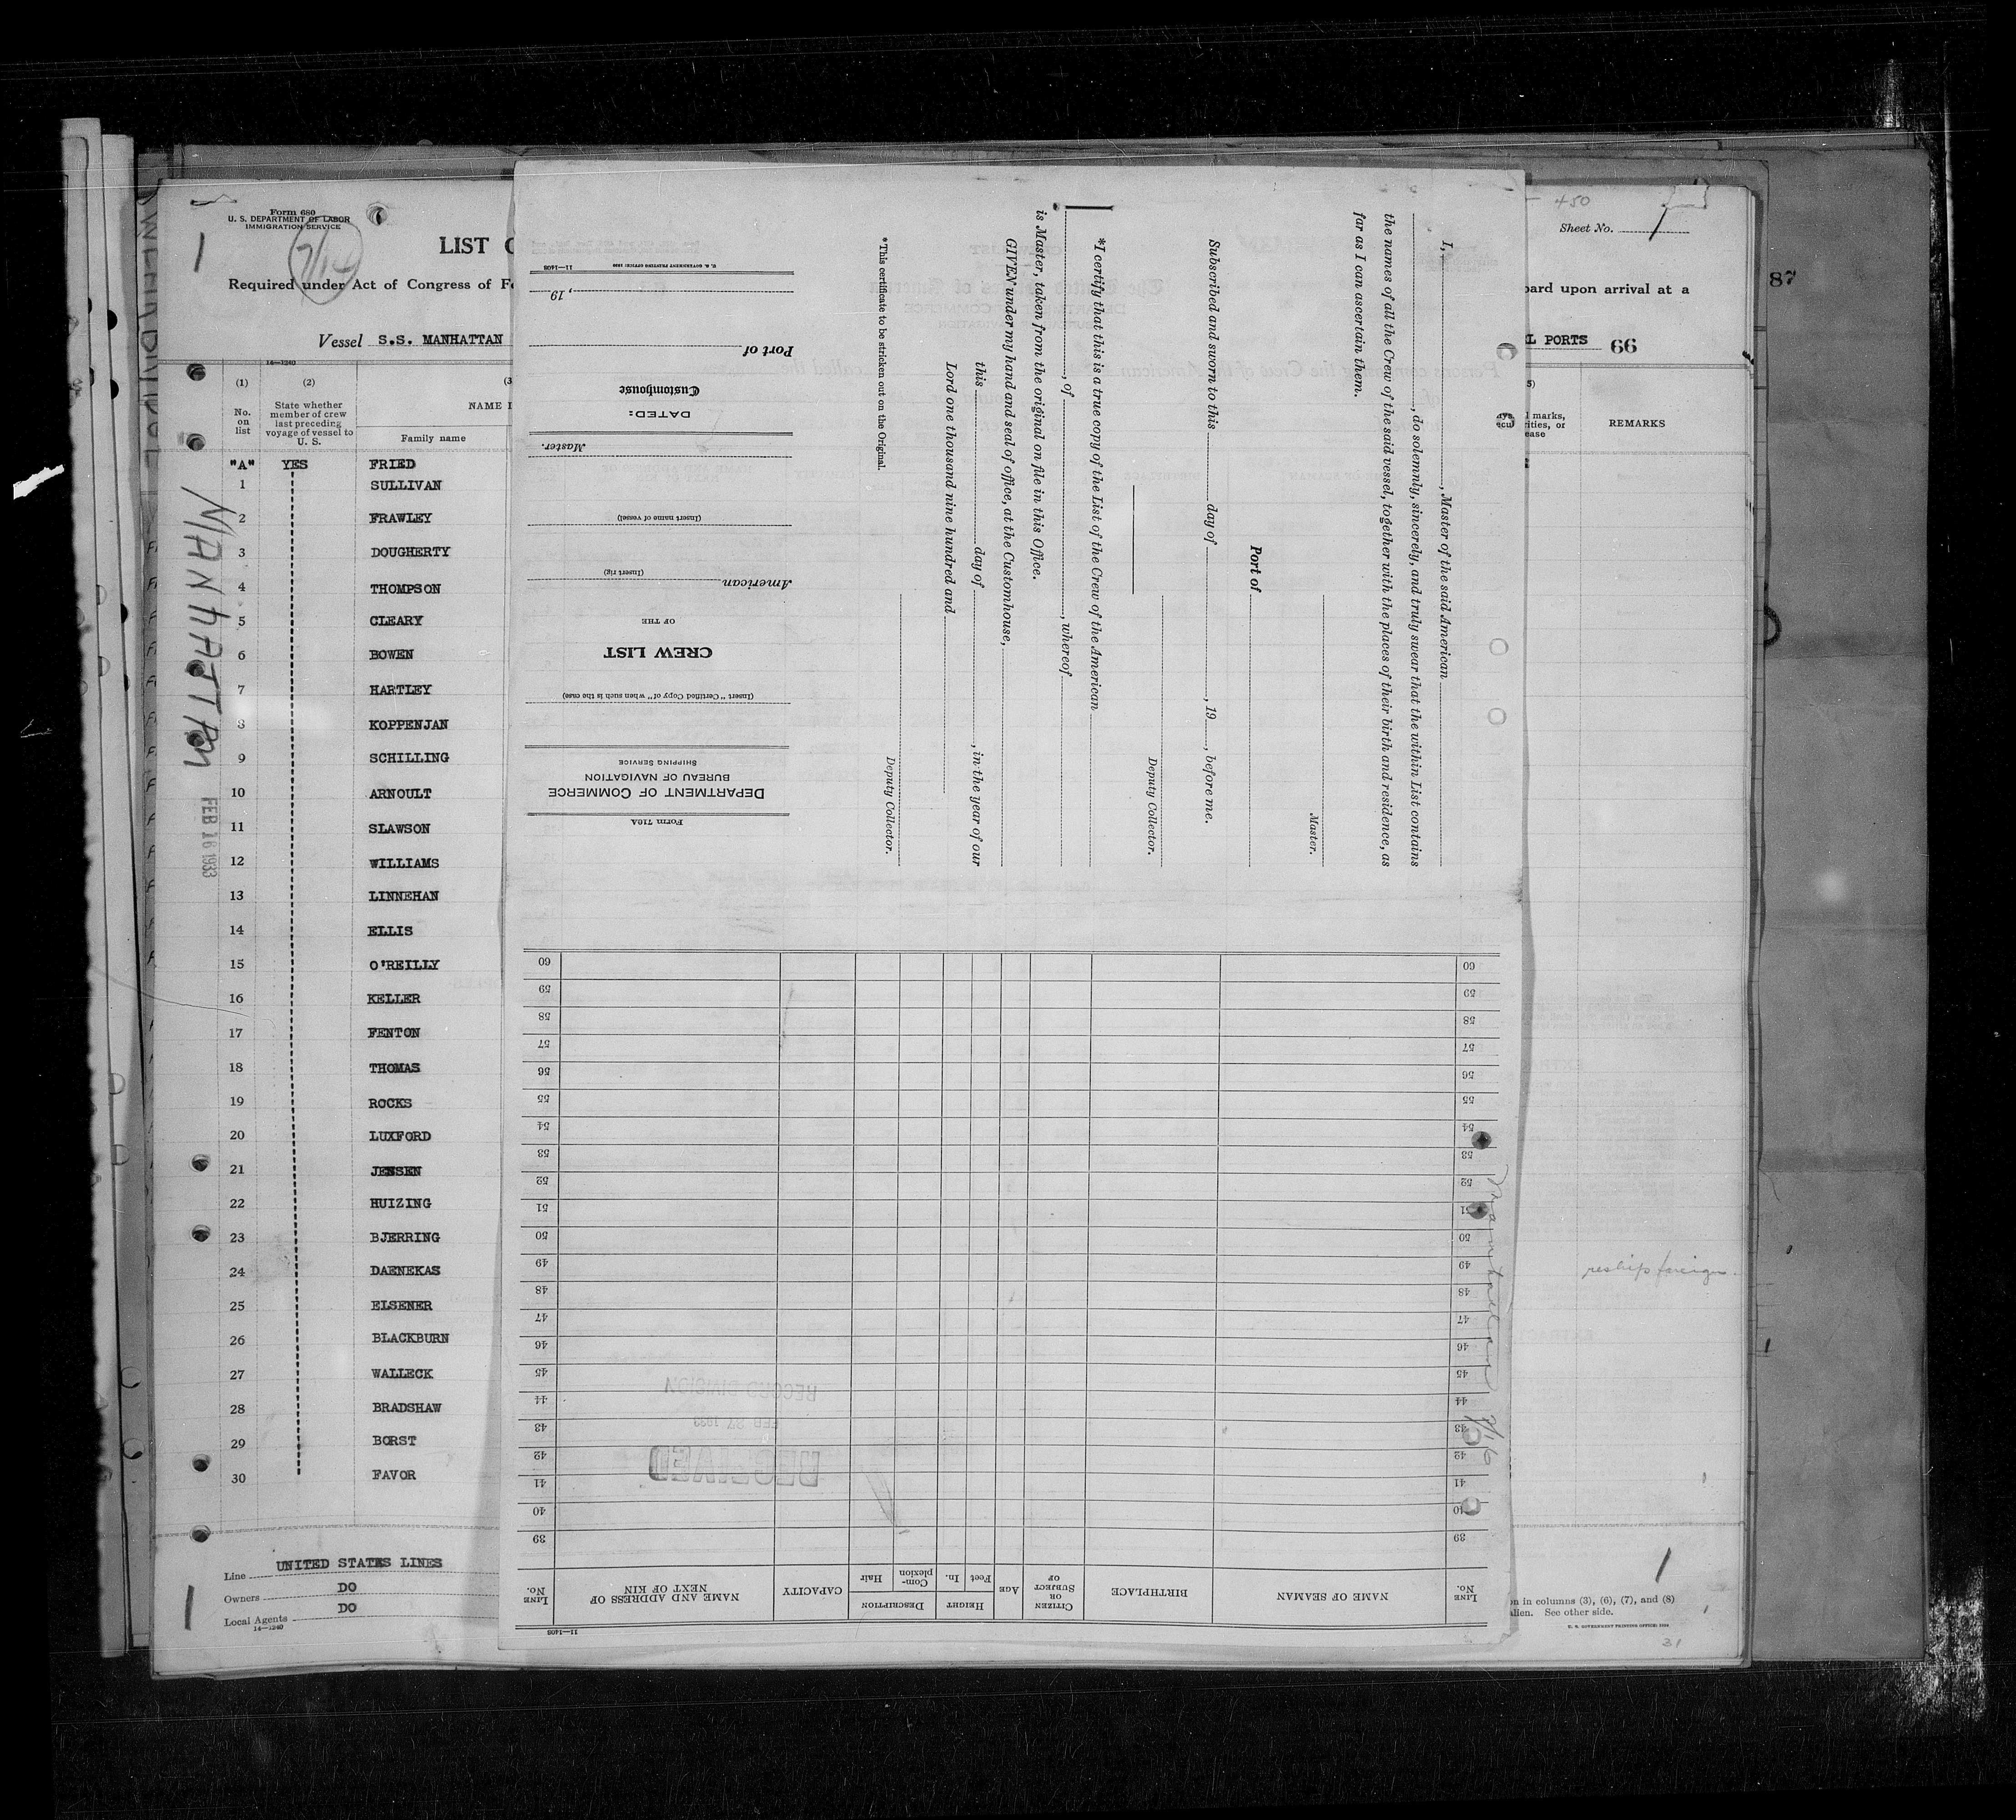 Form 680
U. S. DEPARTMENT OF LABOR
IMMIGRATION SERVICE
7/14
1
LIST
Required under Act of Congress of
Vessel S.S. MANHATTAN
14—1240
(1)
No. on list
(2)
State whether member of crew last preceding voyage of vessel to U. S.
(3
NAME
Family name
"A" YES FRIED
1 SULLIVAN
2 FRAWLEY
3 DOUGHERTY
4 THOMPSON
5 CLEARY
6 BOWEN
7 HARTLEY
8 KOPPENJAN
9 SCHILLING
10 ARNOULT
11 SLAWSON
12 WILLIAMS
13 LINNEHAN
14 ELLIS
15 O'REILLY
16 KELLER
17 FENTON
18 THOMAS
19 ROCKS
20 LUXFORD
21 JENSEN
22 HUIZING
23 BJERRING
24 DAENEKAS
25 ELSENER
26 BLACKBURN
27 WALLECK
28 BRADSHAW
29 BORST
30 FAVOR
MANHATTAN
FEB 16 1933
Line UNITED STATES LINES
Owners DO
Local Agents DO
14—1240
1
I, , Master of the said American
, do solemnly, sincerely, and truly swear that the within List contains
the names of all the Crew of the said vessel, together with the places of their birth and residence, as
far as I can ascertain them.
Master.
Port of
Subscribed and sworn to this day of , 19 , before me.
Deputy Collector.
*I certify that this is a true copy of the List of the Crew of the American
, of , whereof
is Master, taken from the original on file in this Office.
GIVEN under my hand and seal of office, at the Customhouse,
this day of , in the year of our
Lord one thousand nine hundred and
Deputy Collector.
*This certificate to be stricken out on the Original.
Form 710A
DEPARTMENT OF COMMERCE
BUREAU OF NAVIGATION
SHIPPING SERVICE
(Insert "Certified Copy of" when such is the case)
CREW LIST
OF THE
American
(Insert rig)
(Insert name of vessel)
Master.
DATED:
Customhouse
Port of
, 19
11—1408
11—1408
LINE No.
NAME OF SEAMAN
BIRTHPLACE
CITIZEN OR SUBJECT OF
AGE
HEIGHT
Feet
In.
DESCRIPTION
Complexion
Hair
CAPACITY
NAME AND ADDRESS OF NEXT OF KIN
LINE No.
39 39
40 40
41 41
42 42
43 43
44 44
45 45
46 46
47 47
48 48
49 49
50 50
51 51
52 52
53 53
54 54
55 55
56 56
57 57
58 58
59 59
60 60
RECEIVED
FEB 27 1933
RECORD DIVISION
Manhattan 2/16
450
Sheet No. 1
87
board upon arrival at a
PORTS 66
REMARKS
reship foreign
1
on in columns (3), (6), (7), and (8)
alien. See other side.
U. S. GOVERNMENT PRINTING OFFICE
31